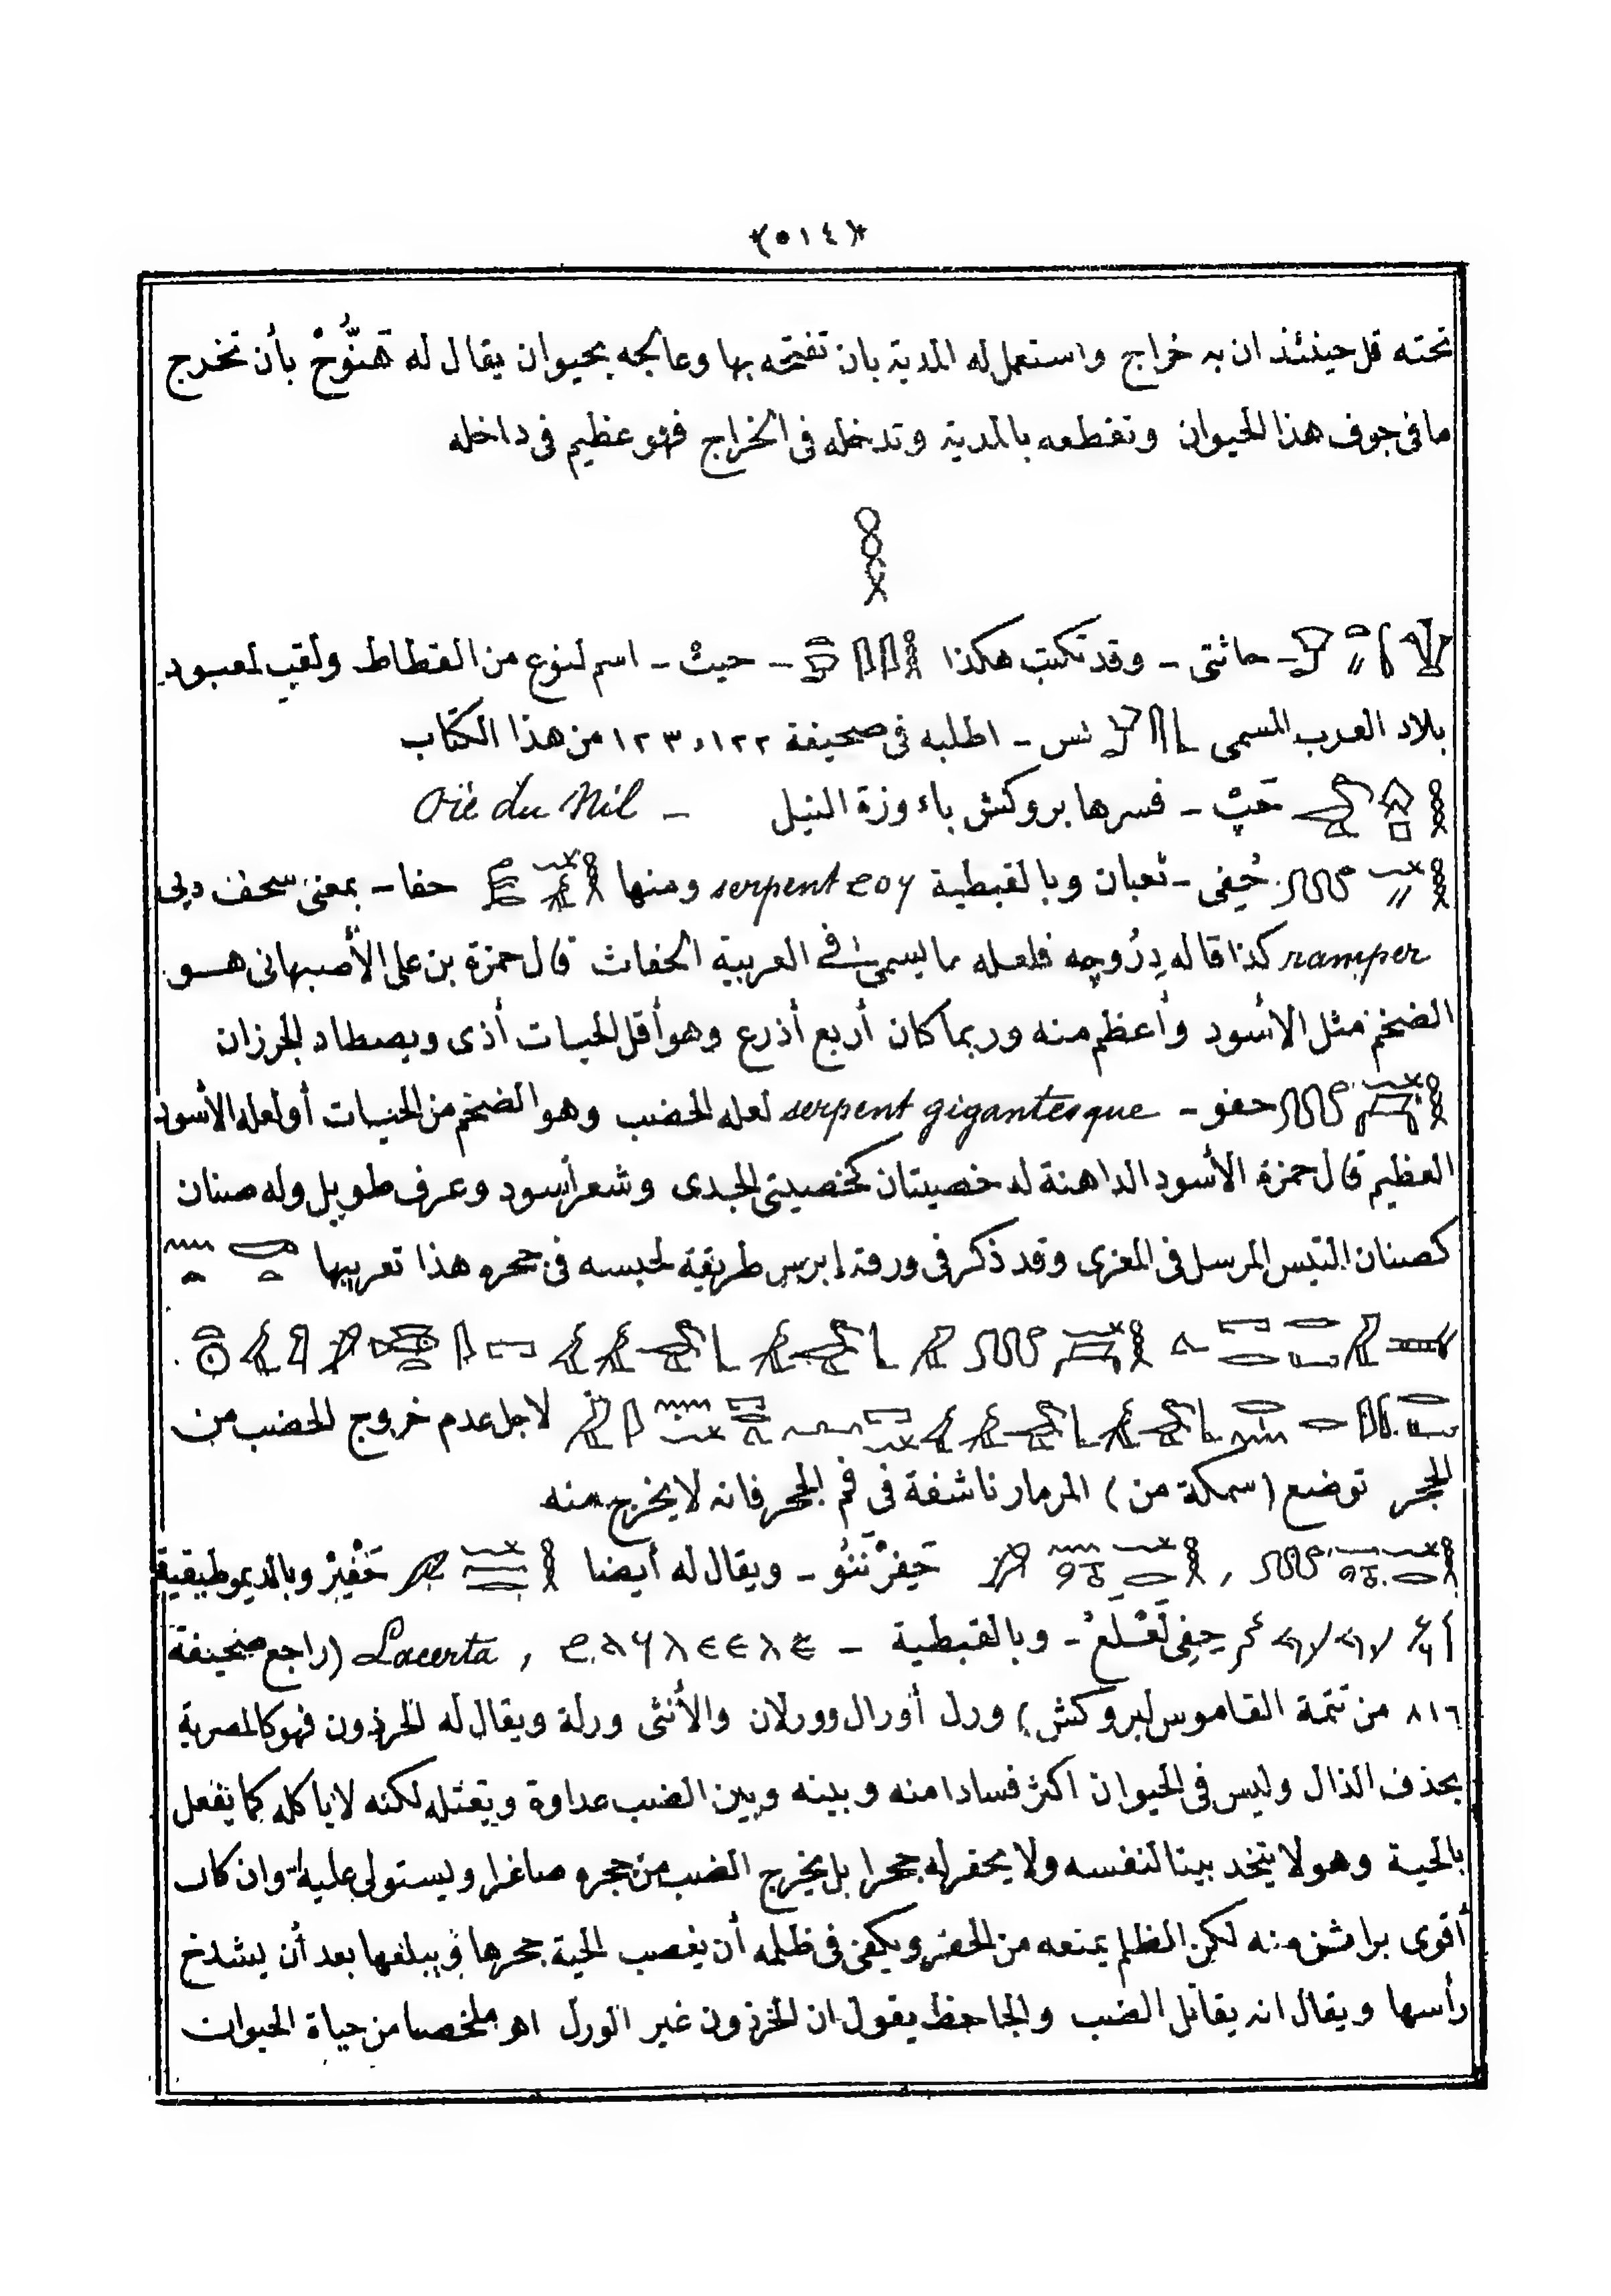 *(٥١٤)*
تحته قل حينئذ ان به خراج واستعمل له المدية بان تفتحه بها وعالجه بحيوان يقال له هَنُّوخْ بأن تخرج
ما فى جوف هذا الحيوان وتقطعه بالمدية وتدخله فى الخراج فهو عظيم فى داخله
ـ حاثتى ـ وقد تكتب هكذا ـ حيث ـ اسم لنوع من القطاط ولقب لمعبود
بلاد العرب المسمى نس ـ اطلبه فى صحيفة ١٢٢و١٢٣ من هذا الكتاب
حَپْ ـ فسرها بروكش باء وزة النيل ـ Oie du Nil
حُفِى ـ ثعبان وبالقبطية ϩⲟϥ serpent ومنها حفا ـ بمعنى سحف دبى
ramper كذا قاله دِرُوچه فلعله ما يسمى فى العربية الحفاث قال حمزة بن على الأصبهانى هو
الضخم مثل الاسود وأعظم منه وربما كان أربع أذرع وهو أقل الحيات أذى ويصطاد الجرزان
حفو ـ serpent gigantesque لعله الحضب وهو الضخم من الحيات أولعله الأسود
العظيم قال حمزة الأسود الداهنة له خصيتان كخصيتى الجدى وشعر أسود وعرف طويل وله صنان
كصنان التيس المرسل فى المعزى وقد ذكر فى ورقة إبرس طريقة لحبسه فى جحره هذا تعريبها
لاجل عدم خروج الحضب من
الجحر توضع (سمكة من) المرمار ناشفة فى فم الجحر فانه لا يخرج منه
، حَفِرْنَنُو ـ ويقال له أيضا حَفْيِرْ وبالديموطيقية
حِفِى لَعْلَعُ ـ وبالقبطية ـ ϩⲁϥⲗⲉⲉⲗⲉ , Lacerta (راجع صحيفة
٨١٦ من تتمة القاموس لبروكش) ورل أورال وورلان والأنثى ورلة ويقال له الحرذون فهو كالمصرية
بحذف الذال وليس فى الحيوان اكثر فسادا منه وبينه وبين الضب عداوة ويقتله لكنه لا ياكله كما يفعل
بالحية وهو لا يتخذ بيتا لنفسه ولا يحفر له جحرا بل يخرج الضب من جحره صاغرا ويستولى عليه وان كان
أقوى براثن منه لكن الظلم يمنعه من الحفر ويكفى فى ظلمه أن يغصب الحية جحرها ويبلعها بعد أن يشدخ
رأسها ويقال انه يقاتل الضب والجاحظ يقول ان الحرذون غير الورل اهـ ملخصا من حياة الحيوان